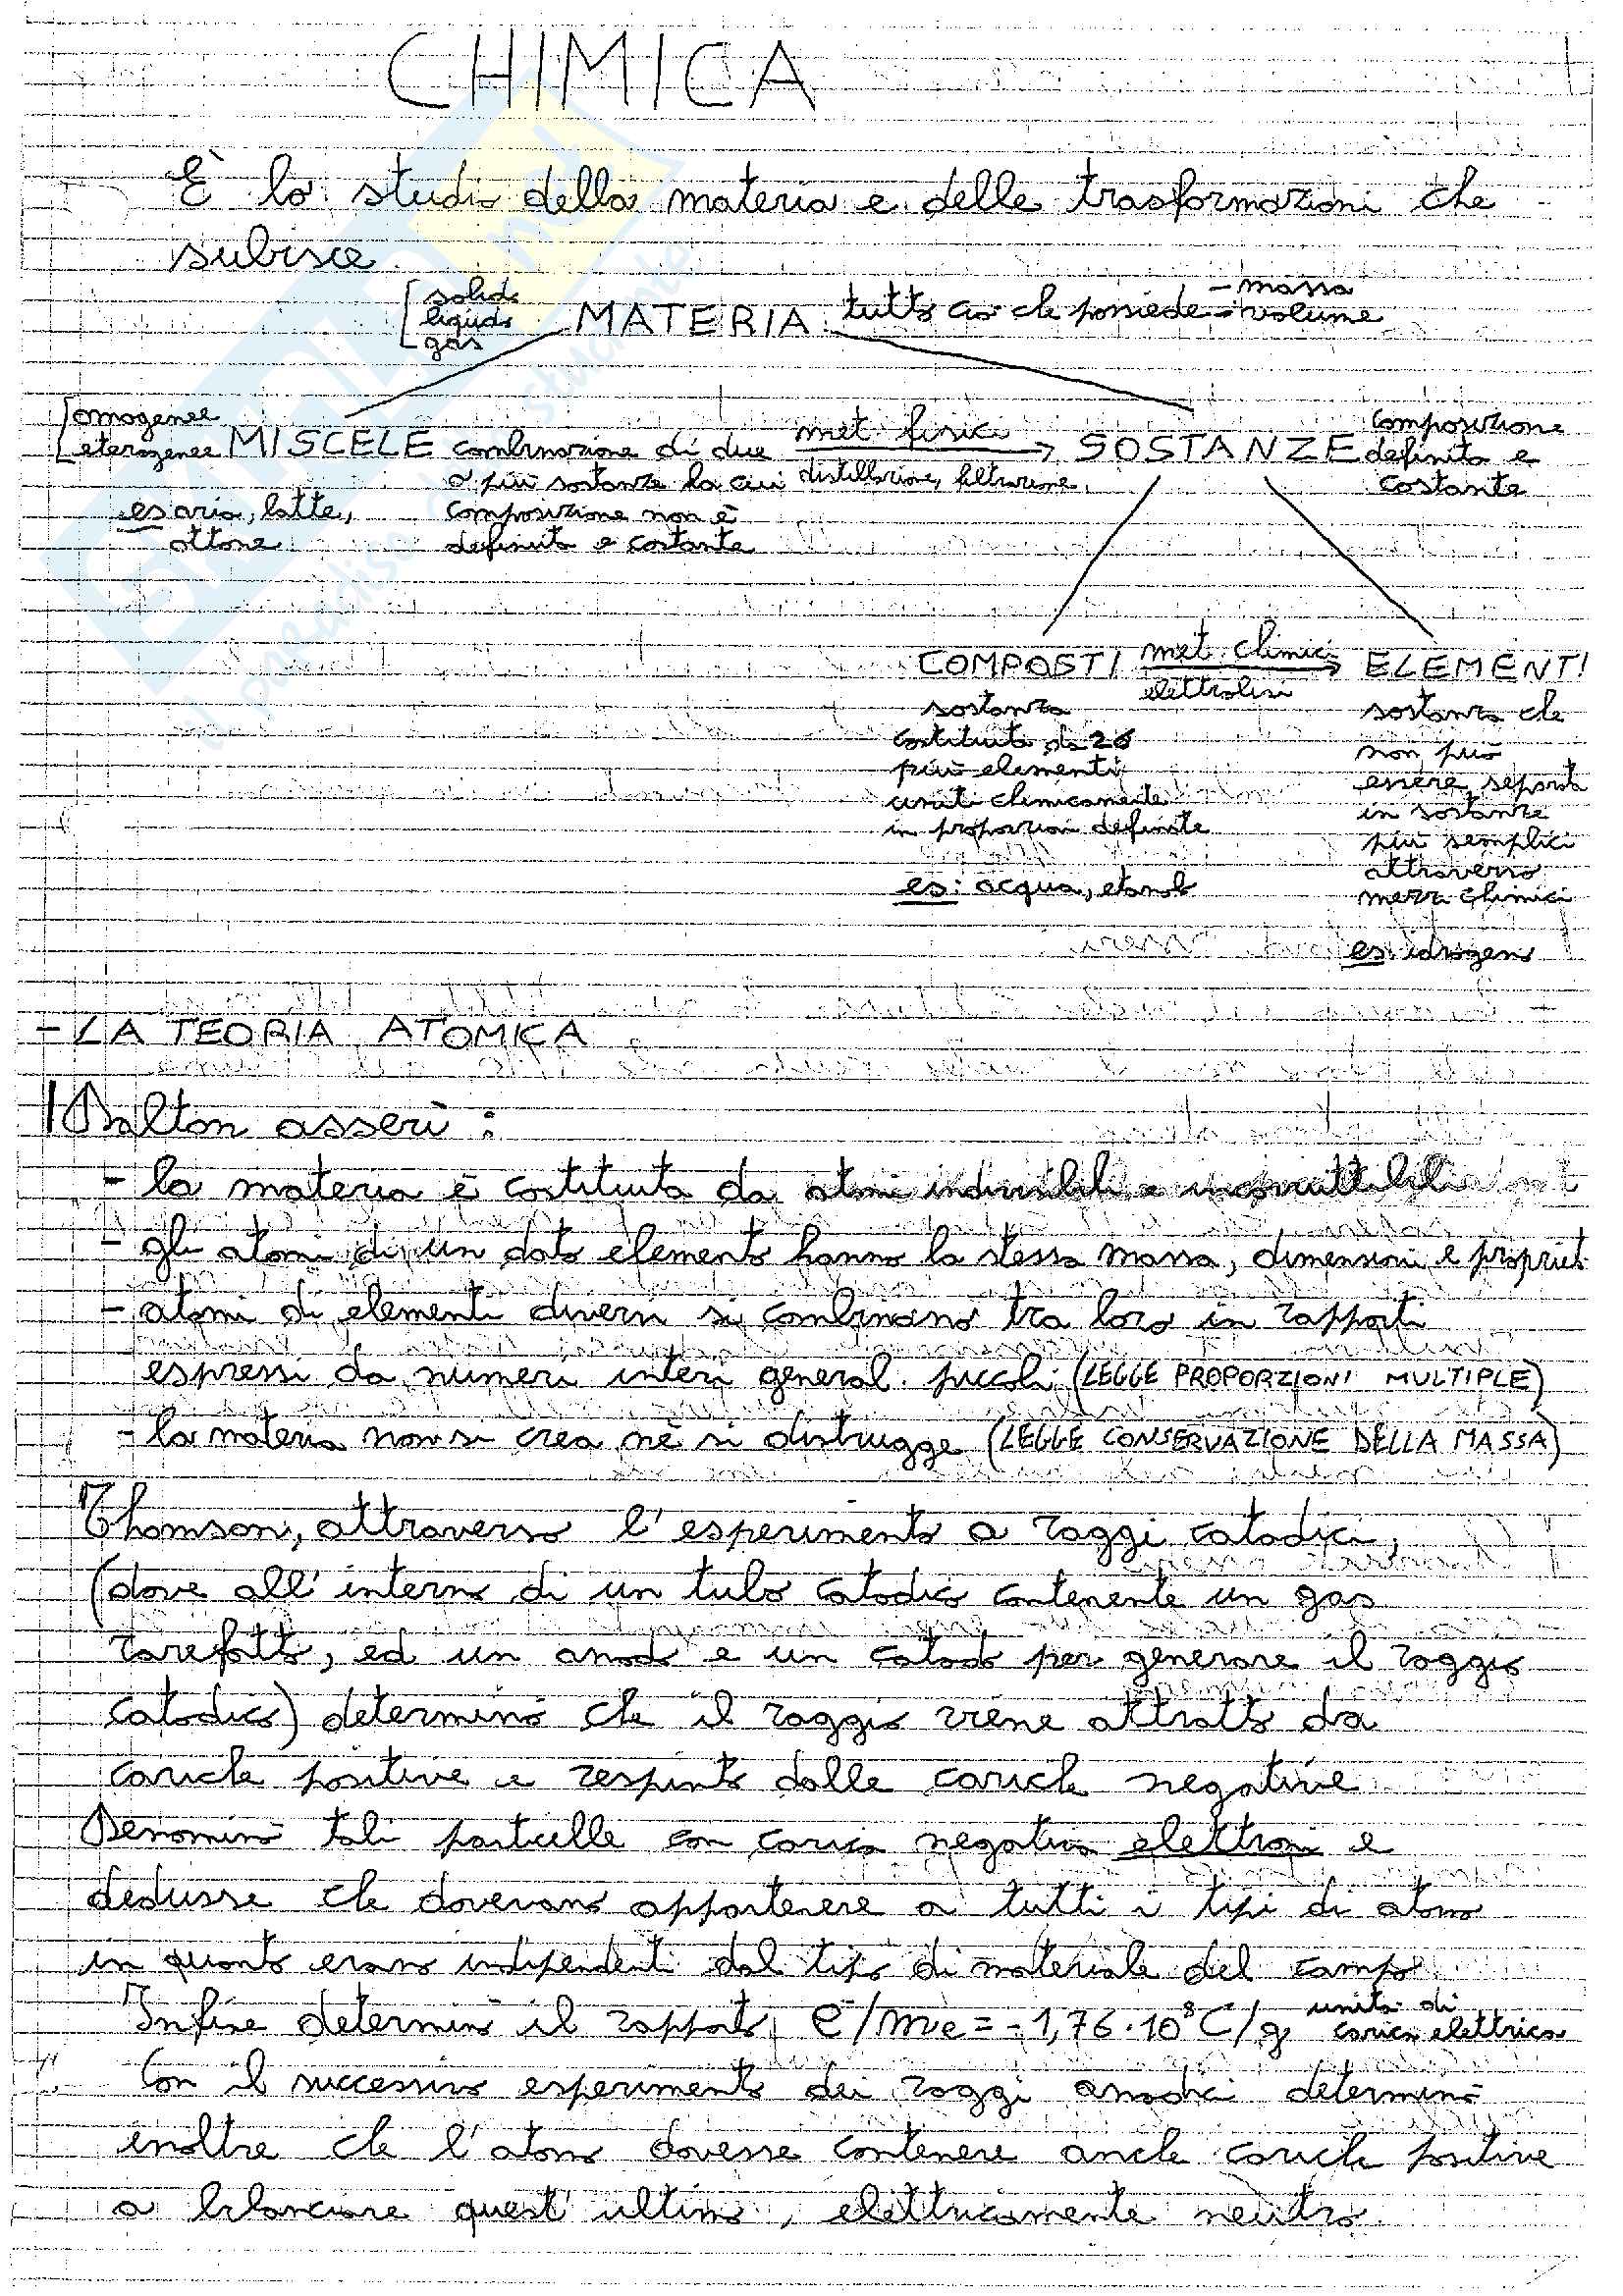 CHIMICA
È lo studio della materia e delle trasformazioni che
subisce.
solido
liquido
gas
MATERIA tutto ciò che possiede - massa
- volume
omogenee
eterogenee
MISCELE combinazione di due
o più sostanze la cui
composizione non è
definita e costante
es aria, latte,
ottone
met. fisici
distillazione, filtrazione
SOSTANZE composizione
definita e
costante
COMPOSTI
met. chimici
elettrolisi
ELEMENTI
sostanza
costituita da 2 o
più elementi
uniti chimicamente
in proporzioni definite
es: acqua, etanolo
sostanza che
non può
essere separata
in sostanze
più semplici
attraverso
mezzi chimici
es: idrogeno
- LA TEORIA ATOMICA
Dalton asserì:
- la materia è costituita da atomi indivisibili e
- gli atomi di un dato elemento hanno la stessa massa, dimensioni e propriet
- atomi di elementi diversi si combinano tra loro in rapporti
espressi da numeri interi general. piccoli (LEGGE PROPORZIONI MULTIPLE)
- la materia non si crea nè si distrugge (LEGGE CONSERVAZIONE DELLA MASSA)
Thomson, attraverso l'esperimento a raggi catodici,
(dove all'interno di un tubo catodico contenente un gas
rarefatto, ed un anodo e un catodo per generare il raggio
catodico) determinò che il raggio viene attratto da
cariche positive e respinto dalle cariche negative.
Denominò tali particelle con carica negativa elettroni e
dedusse che dovevano appartenere a tutti i tipi di atomo
in quanto erano indipendenti dal tipo di materiale del campo.
Infine determinò il rapporto e⁻/me = -1,76·10⁸ C/g unità di
carica elettrica
Con il successivo esperimento dei raggi anodici determinò
inoltre che l'atomo dovesse contenere anche cariche positive
a bilanciare quest'ultimo, elettricamente neutro.